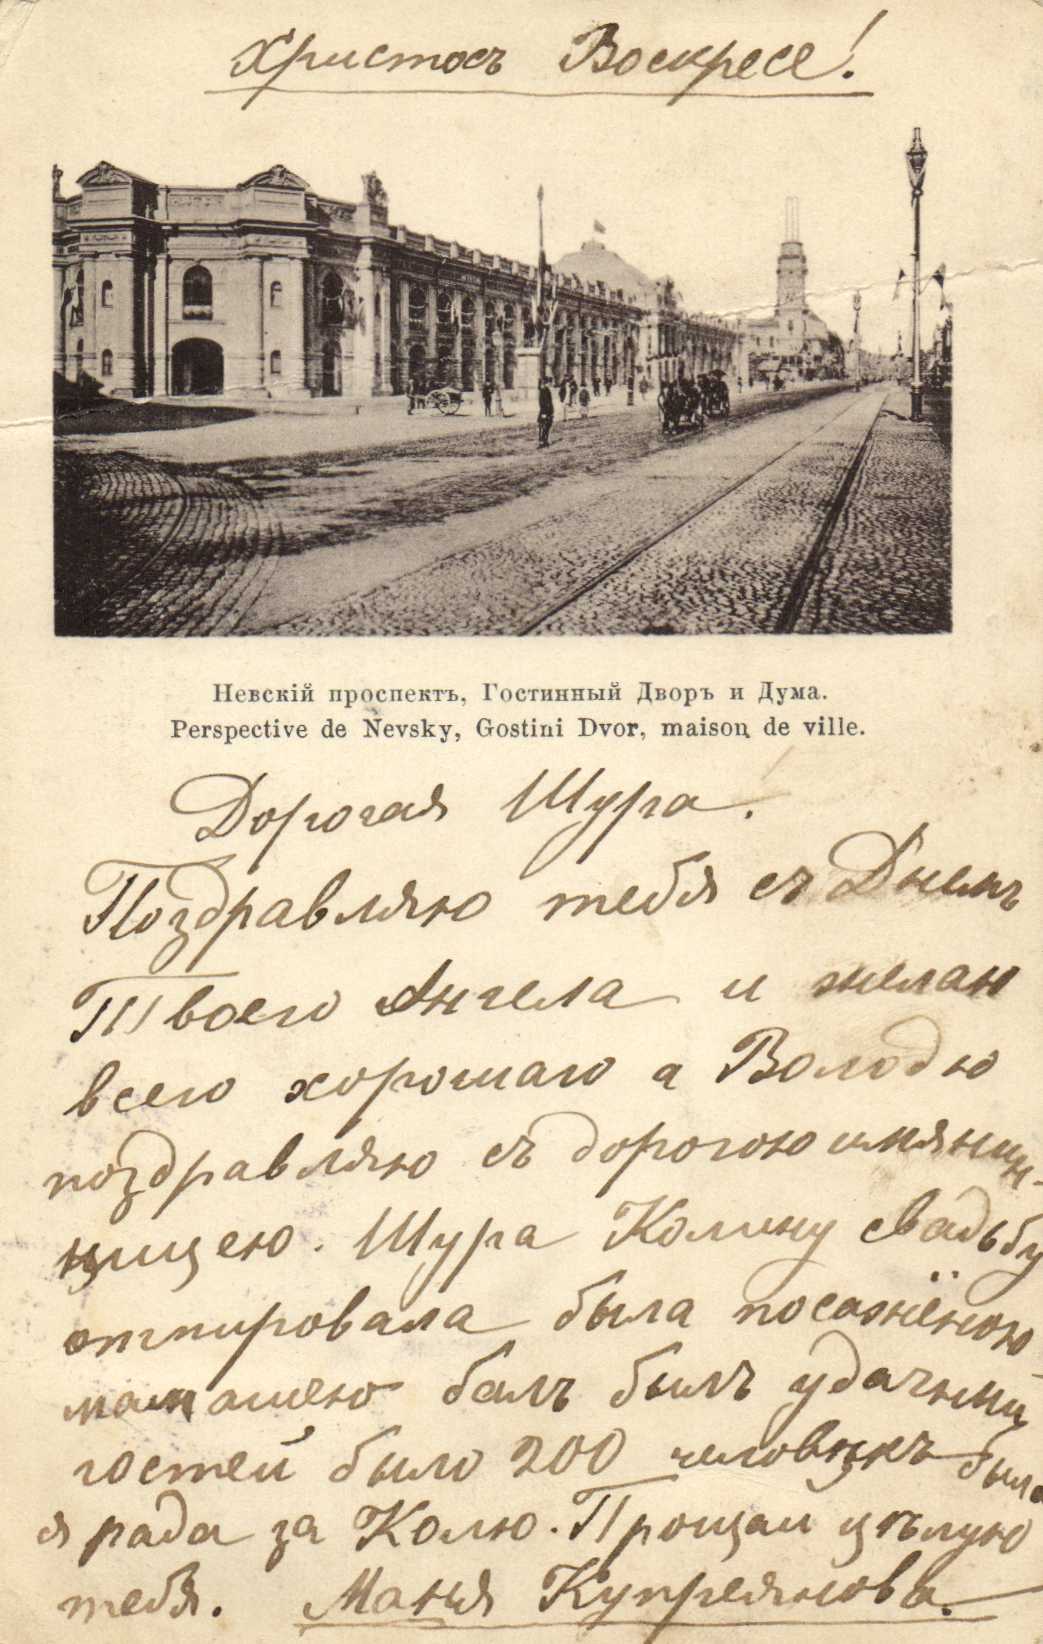 Христосъ Воскресе!
Невскій проспектъ, Гостинный Дворъ и Дума.
Perspective de Nevsky, Gostini Dvor, maison de ville.
Дорогая Шура.
Поздравляю тебя съ Днемъ
Твоего Ангела и желаю
всего хорошаго а Володю
поздравляю съ дорогою имянин-
ницею. Шура Колину свадьбу
отпировала была посажёною
мамашею балъ былъ удачный
гостей было 200 человѣкъ была
я рада за Колю. Прощай цѣлую
тебя. Маня Купреянова.